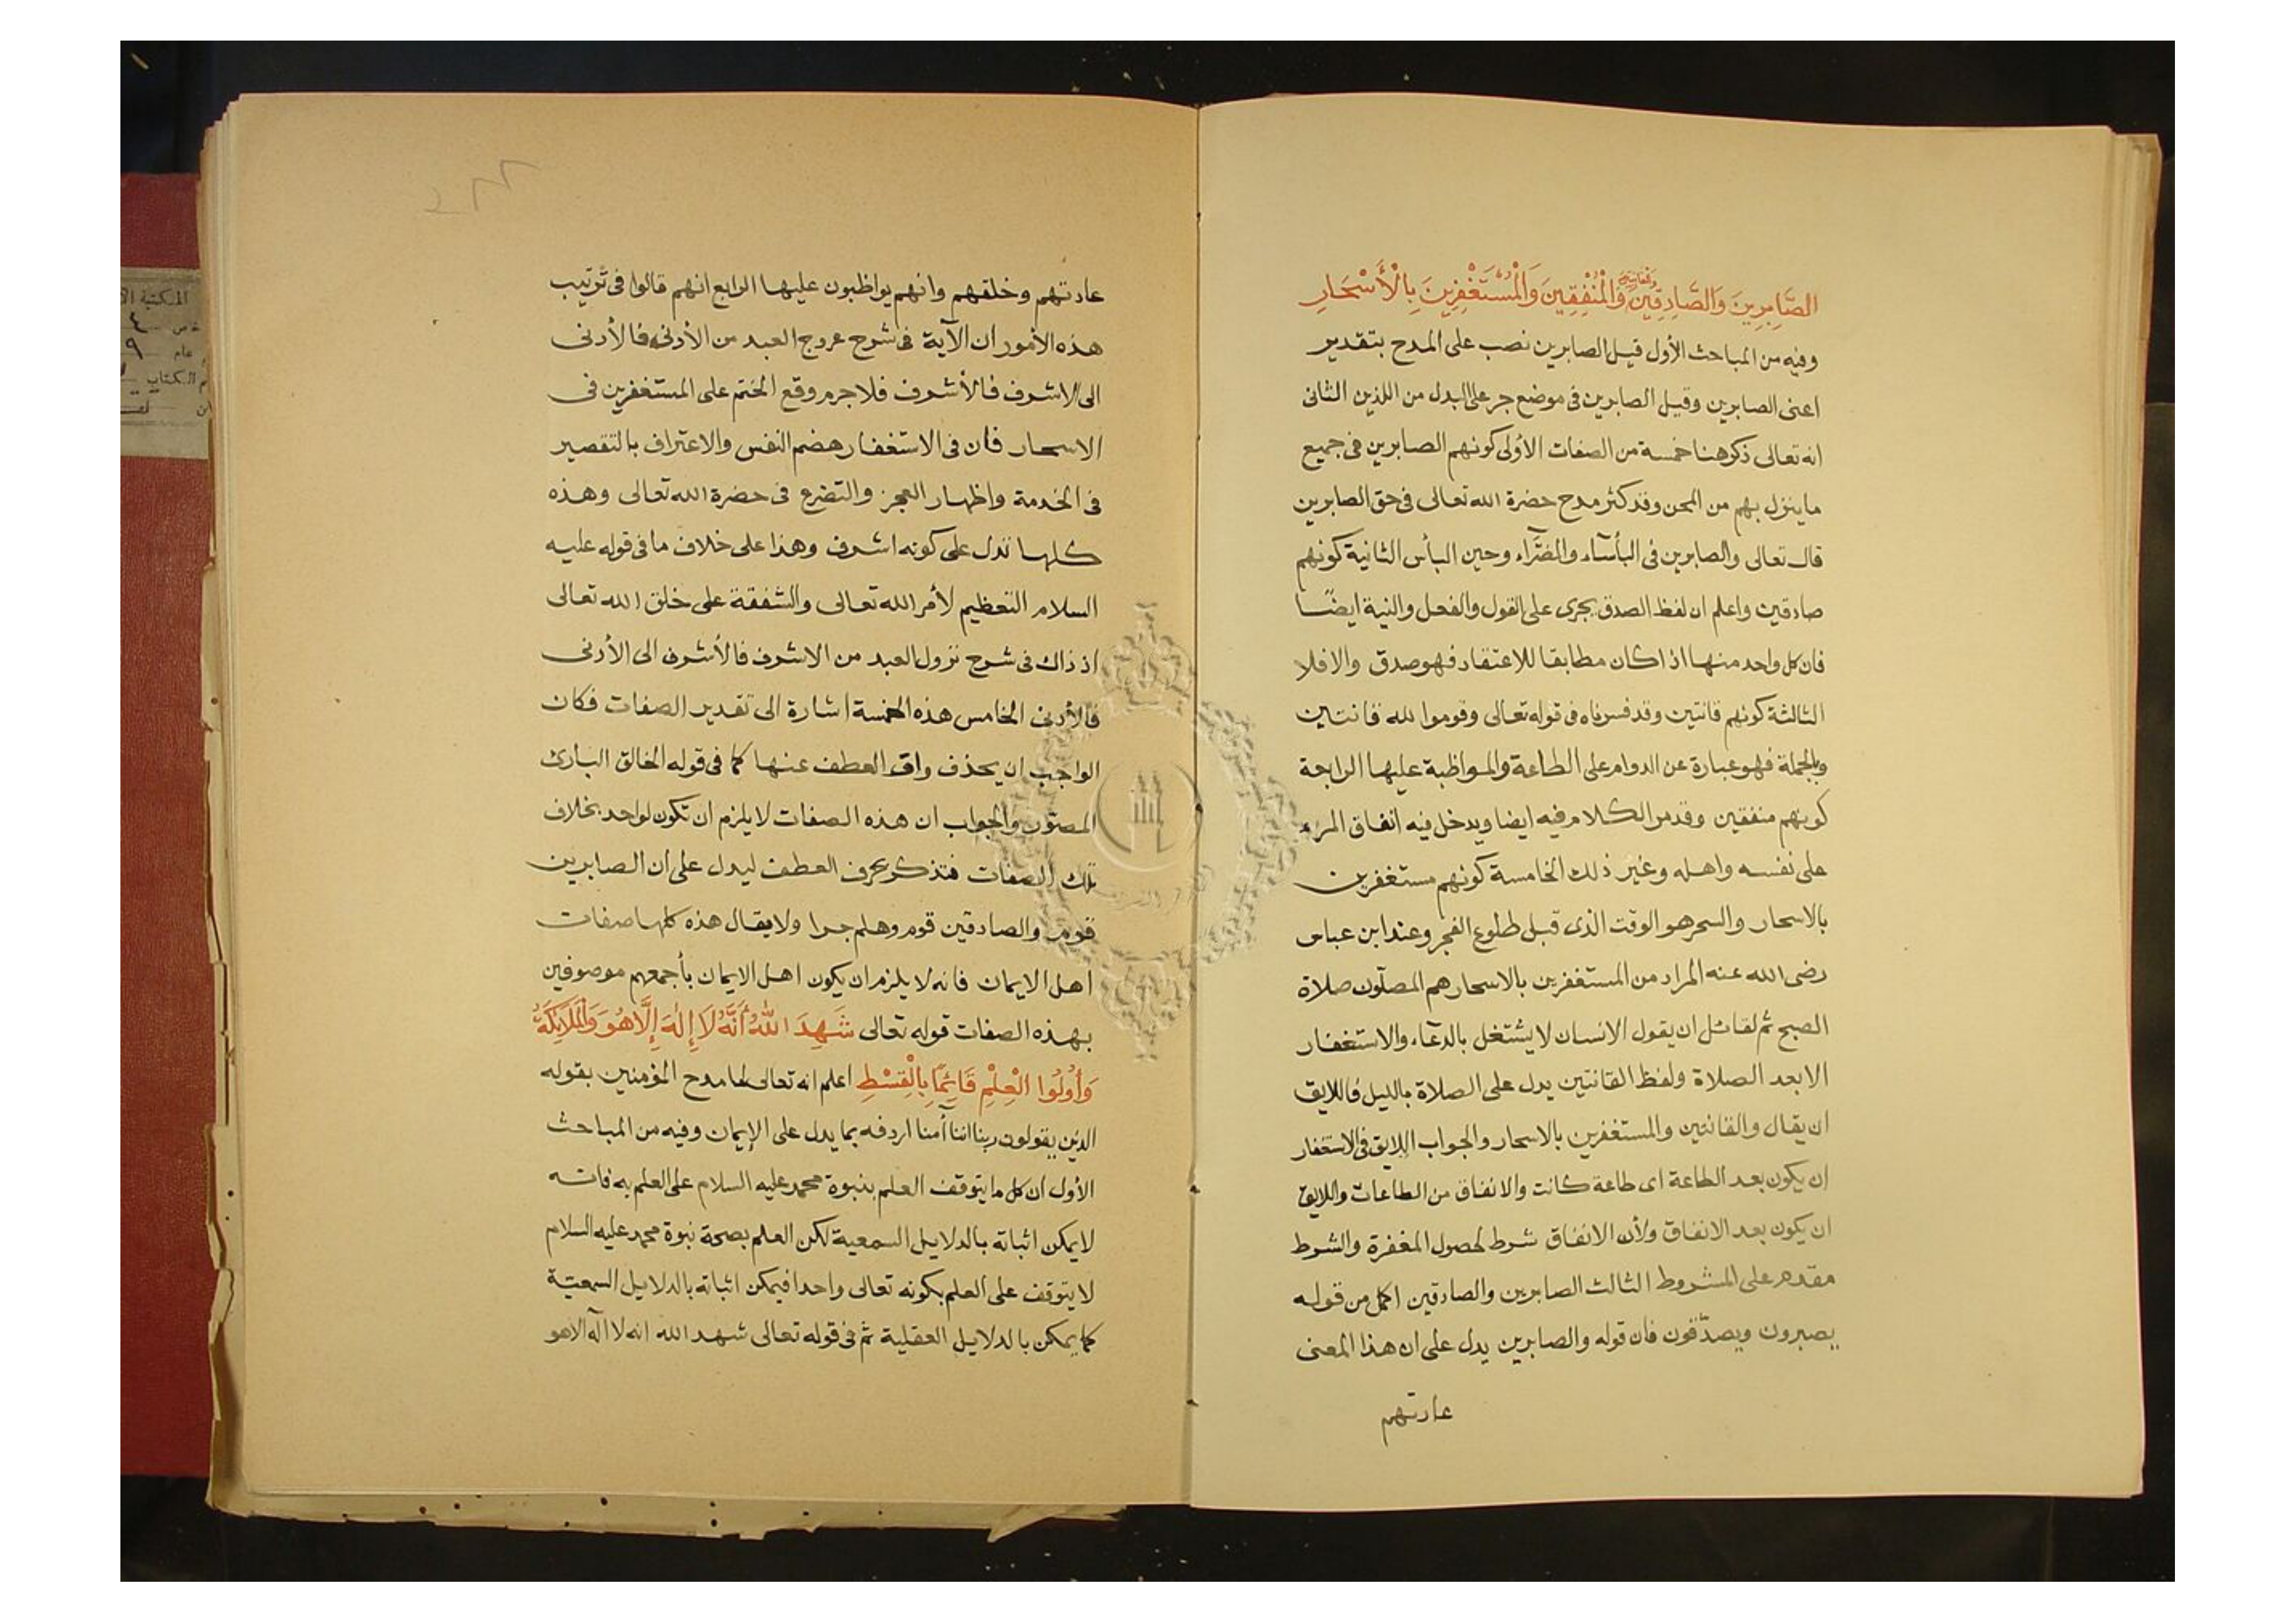 الصَّابِرِينَ وَالصَّادِقِينَ وَالْقَانِتِينَ وَالْمُنْفِقِينَ وَالْمُسْتَغْفِرِينَ بِالْأَسْحَارِ
وفيه من المباحث الأول قيل الصابرين نصب على المدح بتقدير
اعنى الصابرين وقيل الصابرين فى موضع جر على البدل من اللذين الثانى
انه تعالى ذكر هنا خمسة من الصفات الأولى كونهم الصابرين فى جميع
ما ينزل بهم من المحن وقد كثر مدح حضرة الله تعالى فى حق الصابرين
قال تعالى والصابرين فى البأسآء والضرَّآء وحين البأس الثانية كونهم
صادقين واعلم ان لفظ الصدق يجرى على القول والفعل والنية ايضًا
فان كل واحد منها اذا كان مطابقا للاعتقاد فهو صدق والا فلا
الثالثة كونهم قانتين وقد فسرناه فى قوله تعالى وقوموا لله قانتين
وبالجملة فهو عبارة عن الدوام على الطاعة والمواظبة عليها الرابعة
كونهم منفقين وقد مر الكلام فيه ايضا ويدخل فيه انفاق المرء
على نفسه واهله وغير ذلك الخامسة كونهم مستغفرين
بالاسحار والسحر هو الوقت الذى قبل طلوع الفجر وعند ابن عباس
رضى الله عنه المراد من المستغفرين بالاسحار هم المصلّون صلاة
الصبح ثم لقائل ان يقول الانسان لا يشتغل بالدعآء والاستغفار
الا بعد الصلاة ولفظ القانتين يدل على الصلاة بالليل فاللايق
ان يقال والقانتين والمستغفرين بالاسحار والجواب اللايق فى الاستغفار
ان يكون بعد الطاعة اى طاعة كانت والانفاق من الطاعات واللايق
ان يكون بعد الانفاق ولأن الانفاق شرط لحصول المغفرة والشرط
مقدم على المشروط الثالث الصابرين والصادقين اكمل من قوله
يصبرون ويصدّقون فان قوله والصابرين يدل على ان هذا المعنى
عادتهم
عادتهم وخلقهم وانهم يواظبون عليها الرابع انهم قالوا فى ترتيب
هذه الأمور ان الآية فى شرح عروج العبد من الأدنى فالأدنى
الى الاشرف فالأشرف فلا جرم وقع الختم على المستغفرين فى
الاسحار فان فى الاستغفار هضم النفس والاعتراف بالتقصير
فى الخدمة واظهار العجز والتضرع فى حضرة الله تعالى وهذه
كلها تدل على كونه اشرف وهذا على خلاف ما فى قوله عليه
السلام التعظيم لأمر الله تعالى والشفقة على خلق الله تعالى
اذ ذاك فى شرح نزول العبد من الاشرف فالأشرف الى الأدنى
فالأدنى الخامس هذه الخمسة اشارة الى تقدير الصفات فكان
الواجب ان يحذف واو العطف عنها كما فى قوله الخالق البارئ
المصوّر والجواب ان هذه الصفات لا يلزم ان تكون لواحد بخلاف
تلك الصفات فتذكر بحرف العطف ليدل على ان الصابرين
قوم والصادقين قوم وهلم جرا ولا يقال هذه كلها صفات
اهل الايمان فانه لا يلزم ان يكون اهل الايمان بأجمعهم موصوفين
بهذه الصفات قوله تعالى شَهِدَ اللهُ أَنَّهُ لَا إِلَهَ إِلَّا هُوَ وَالْمَلَائِكَةُ
وَأُولُوا الْعِلْمِ قَائِمًا بِالْقِسْطِ اعلم انه تعالى لما مدح المؤمنين بقوله
الذين يقولون ربنا اننا آمنا اردفه بما يدل على الإيمان وفيه من المباحث
الأول ان كل ما يتوقف العلم بنبوة محمد عليه السلام على العلم به فانه
لا يمكن اثباته بالدلايل السمعية لكن العلم بصحة نبوة محمد عليه السلام
لا يتوقف على العلم بكونه تعالى واحدا فيمكن اثباته بالدلايل السمعيّة
كما يمكن بالدلايل العقلية ثم فى قوله تعالى شهد الله انه لا اله الا هو